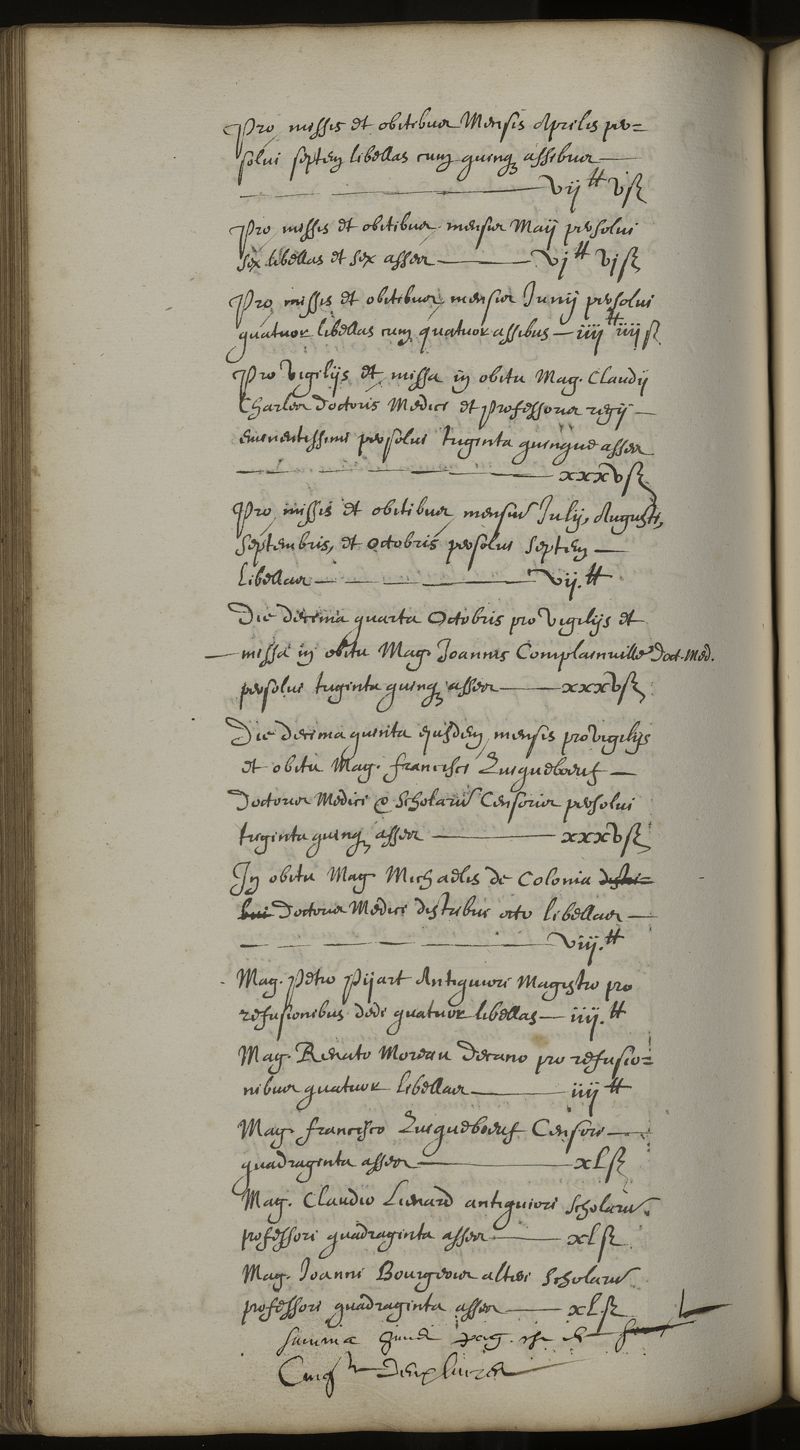 Pro missis et obitibus Mensis Aprilis per=
solui septem libellas cum quinq; assibus —
vij ₶ v ß
Pro missis et obitibus mensis Maij persolui
sex libellas et sex asses — vj ₶ vj ß
Pro missis et obitibus mensis Junij persolui
quatuor libellas cum quatuor assibus — iiij ₶ iiij ß
Pro Vigilijs et missa in obitu Mag. Claudij
Charles Doctoris Medici et Professoris regij —
eminentissimi persolui triginta quinque asses
xxxv ß
Pro missis et obitibus mensium Julij, Augusti,
Septembris, et Octobris persolui septem —
libellas — vij. ₶
Die decima quarta Octobris pro vigilijs et
— missa in obitu Mag. Joannis Complainville Doct. Med.
persolui triginta quinq; asses — xxxv ß
Die decima quinta ejusdem mensis pro vigilijs
et obitu Mag. Francisci Quiquebœuf —
Doctoris Medici & Scholarum Censoris persolui
triginta quinq; asses — xxxv ß
In obitu Mag. Michaelis de Colonia distri=
bui Doctoris Medici distribui octo libellas —
viij. ₶
Mag. Petro Pijart Antiquiori Magistro pro
refusionibus dedi quatuor libellas — iiij. ₶
Mag. Renato Moreau Decano pro refusio=
nibus quatuor libellas — iiij ₶
Mag. Francisco Quiquebœuf Censori —
quadraginta asses — xl ß
Mag. Claudio Lienard antiquiori Scholarum
professori quadraginta asses — xl ß
Mag. Joanni Bourgeois alteri Scholarum
professori quadraginta asses — xl ß
summa pag.